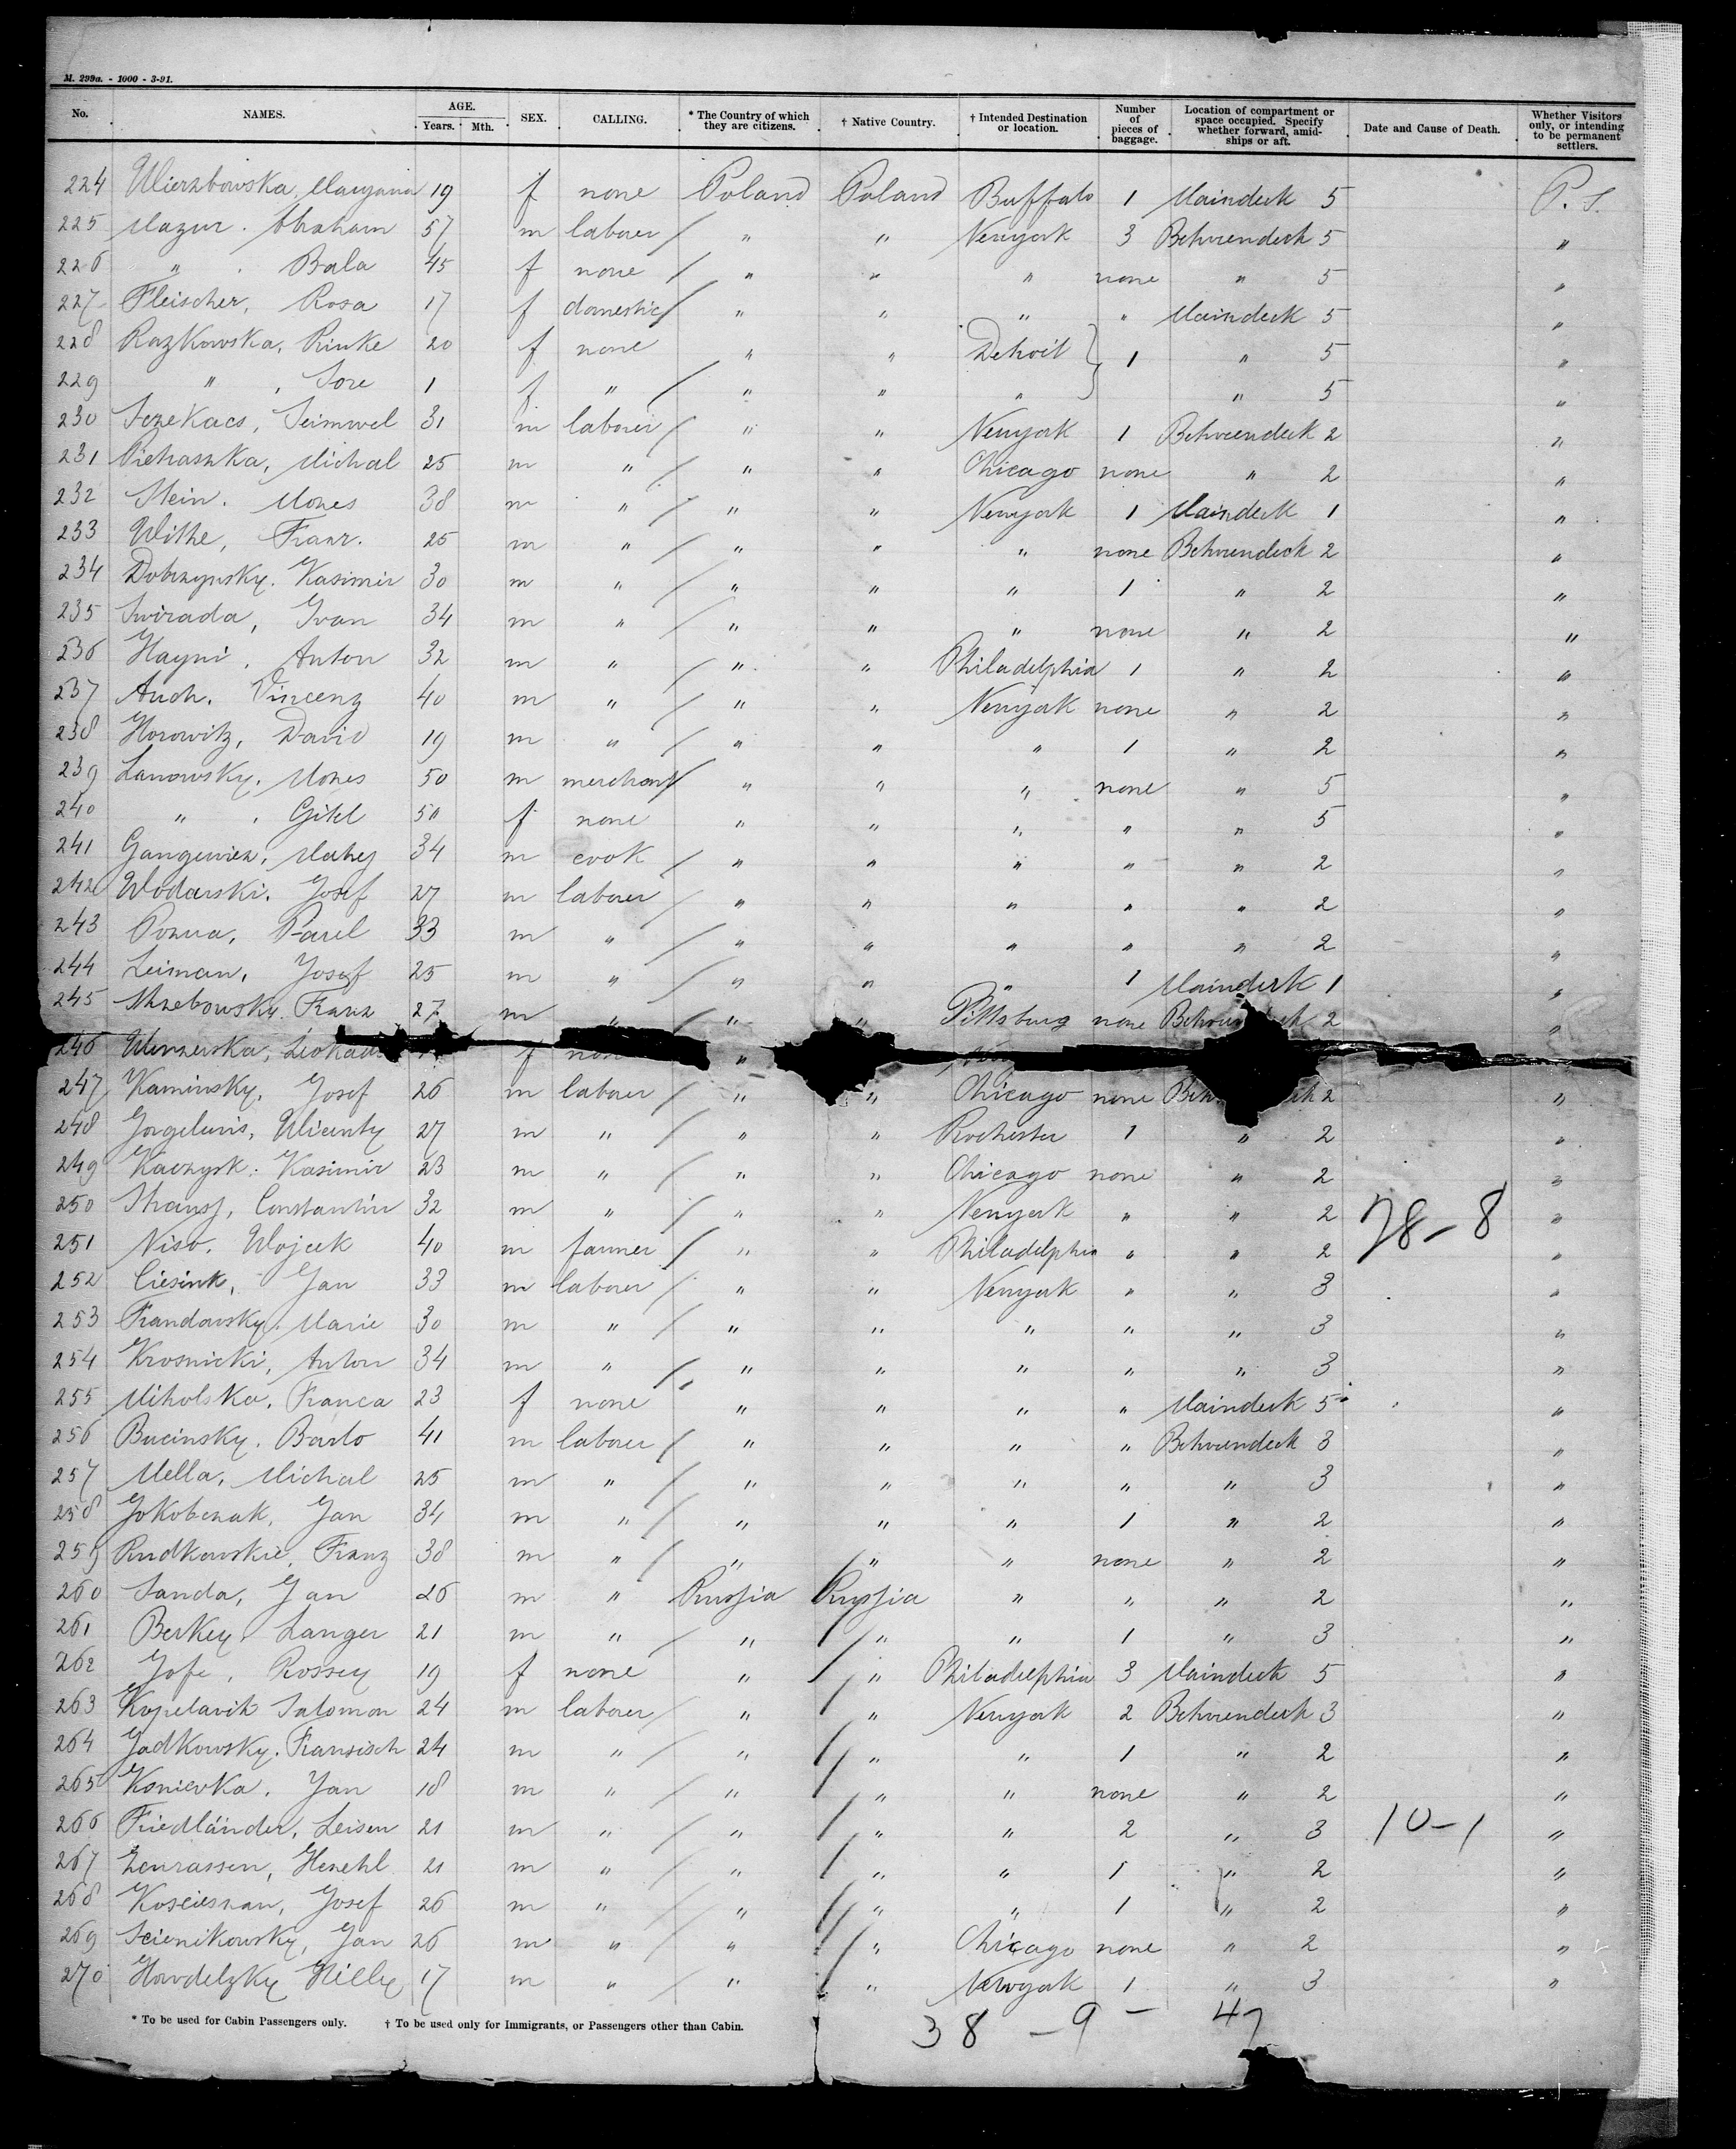 M. 299a. - 1000 - 3-91.
No. NAMES. AGE. Years. Mth. SEX. CALLING. * The Country of which they are citizens. † Native Country. † Intended Destination or location. Number of pieces of baggage. Location of compartment or space occupied. Specify whether forward, amidships or aft. Date and Cause of Death. Whether Visitors only, or intending to be permanent settlers.
224 Wierzbowska, Maryana 19 f none Poland Poland Buffalo 1 Maindeck 5 P. S.
225 Mazur. Abraham 57 m laborer / " " Newyork 3 Betweendeck 5 "
226 " . Bala 45 f none / " " " none " 5 "
227 Fleischer, Rosa 17 f domestic / " " " " Maindeck 5 "
228 Razkowska, Rinke 20 f none " " Detroit } 1 " 5 "
229 " , Sore 1 f " / " " " " 5 "
230 31 m laborer / " " Newyork 1 Betweendeck 2 "
231 Pietraszka, Michal 25 m " / " " Chicago none " 2 "
232 Stein. Moses 38 m " / " " Newyork 1 Maindeck 1 "
233 Withe, Franz. 25 m " / " " " none Betweendeck 2 "
234 Dobrzynsky. Kasimir 30 m " / " " " 1 " 2 "
235 Swirada, Ivan 34 m " / " " " none " 2 "
236 Hayni, Anton 32 m " / " " Philadelphia 1 " 2 "
237 Auch. Vincenz 40 m " / " " Newyork none " 2 "
238 Horowitz, David 19 m " / " " " 1 " 2 "
239 Lanowsky. Moses 50 m merchant / " " " none " 5 "
240 " . Gitel 50 f none " " " " " 5 "
241 Gangewicz, 34 m cook / " " " " " 2 "
242 Wlodarski. Josef 27 m laborer / " " " " " 2 "
243 Pavel 33 m " / " " " " " 2 "
244 Leiman, Josef 25 m " / " " " 1 Maindeck 1 "
245 Franz 27 m " / " " Pittsburg none 2 "
246 f "
247 Kaminsky, Josef 26 m laborer / " " Chicago none 2 "
248 Wicenty 27 m " / " " Rochester 1 " 2 "
249 Kaczysk. Kasimir 23 m " / " " Chicago none " 2 "
250 Constantin 32 m " / " " Newyork " " 2 78-8 "
251 Niso. Wojcek 40 m farmer / " " Philadelphia " " 2 "
252 Ciesink, Jan 33 m laborer / " " Newyork " " 3 "
253 Frandarsky. Marie 30 m " / " " " " " 3 "
254 Krosnicki, Anton 34 m " / " " " " " 3 "
255 Miholska, Franca 23 f none " " " " Maindeck 5 "
256 Bucinsky. Barlo 41 m laborer / " " " " Betweendeck 3 "
257 Mella, Michal 25 m " / " " " " " 3 "
258 Jokobczak, Jan 34 m " / " " " 1 " 2 "
259 Rudkowskie, Franz 38 m " / " " " none " 2 "
260 Sanda, Jan 26 m " Russia Russia " " " 2 "
261 Berkey. Langer 21 m " / " " " 1 " 3 "
262 Jofe, Rossey 19 f none " " Philadelphia 3 Maindeck 5 "
263 Kopelavik Salomon 24 m laborer / " " Newyork 2 Betweendeck 3 "
264 Jadkowsky. Fransisch 24 m " / " " " 1 " 2 "
265 Konievka. Jan 18 m " / " " " none " 2 "
266 Friedländer, Leisen 21 m " / " " " 2 " 3 10-1 "
267 Zenrassen, 21 m " / " " " 1 " 2 "
268 Josef 26 m " / " " " 1 " 2 "
269 Scienikowsky, Jan 26 m " / " " Chicago none " 2 "
270 Hilly 17 m " / " " Newyork 1 " 3 "
* To be used for Cabin Passengers only. † To be used only for Immigrants, or Passengers other than Cabin.
38 - 9 - 47